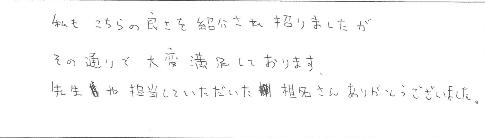 私も こちらの良さを紹介され 招りましたが
その通りで 大変満足しております。
先生や 担当していただいた 椎名さん ありがとうございました。